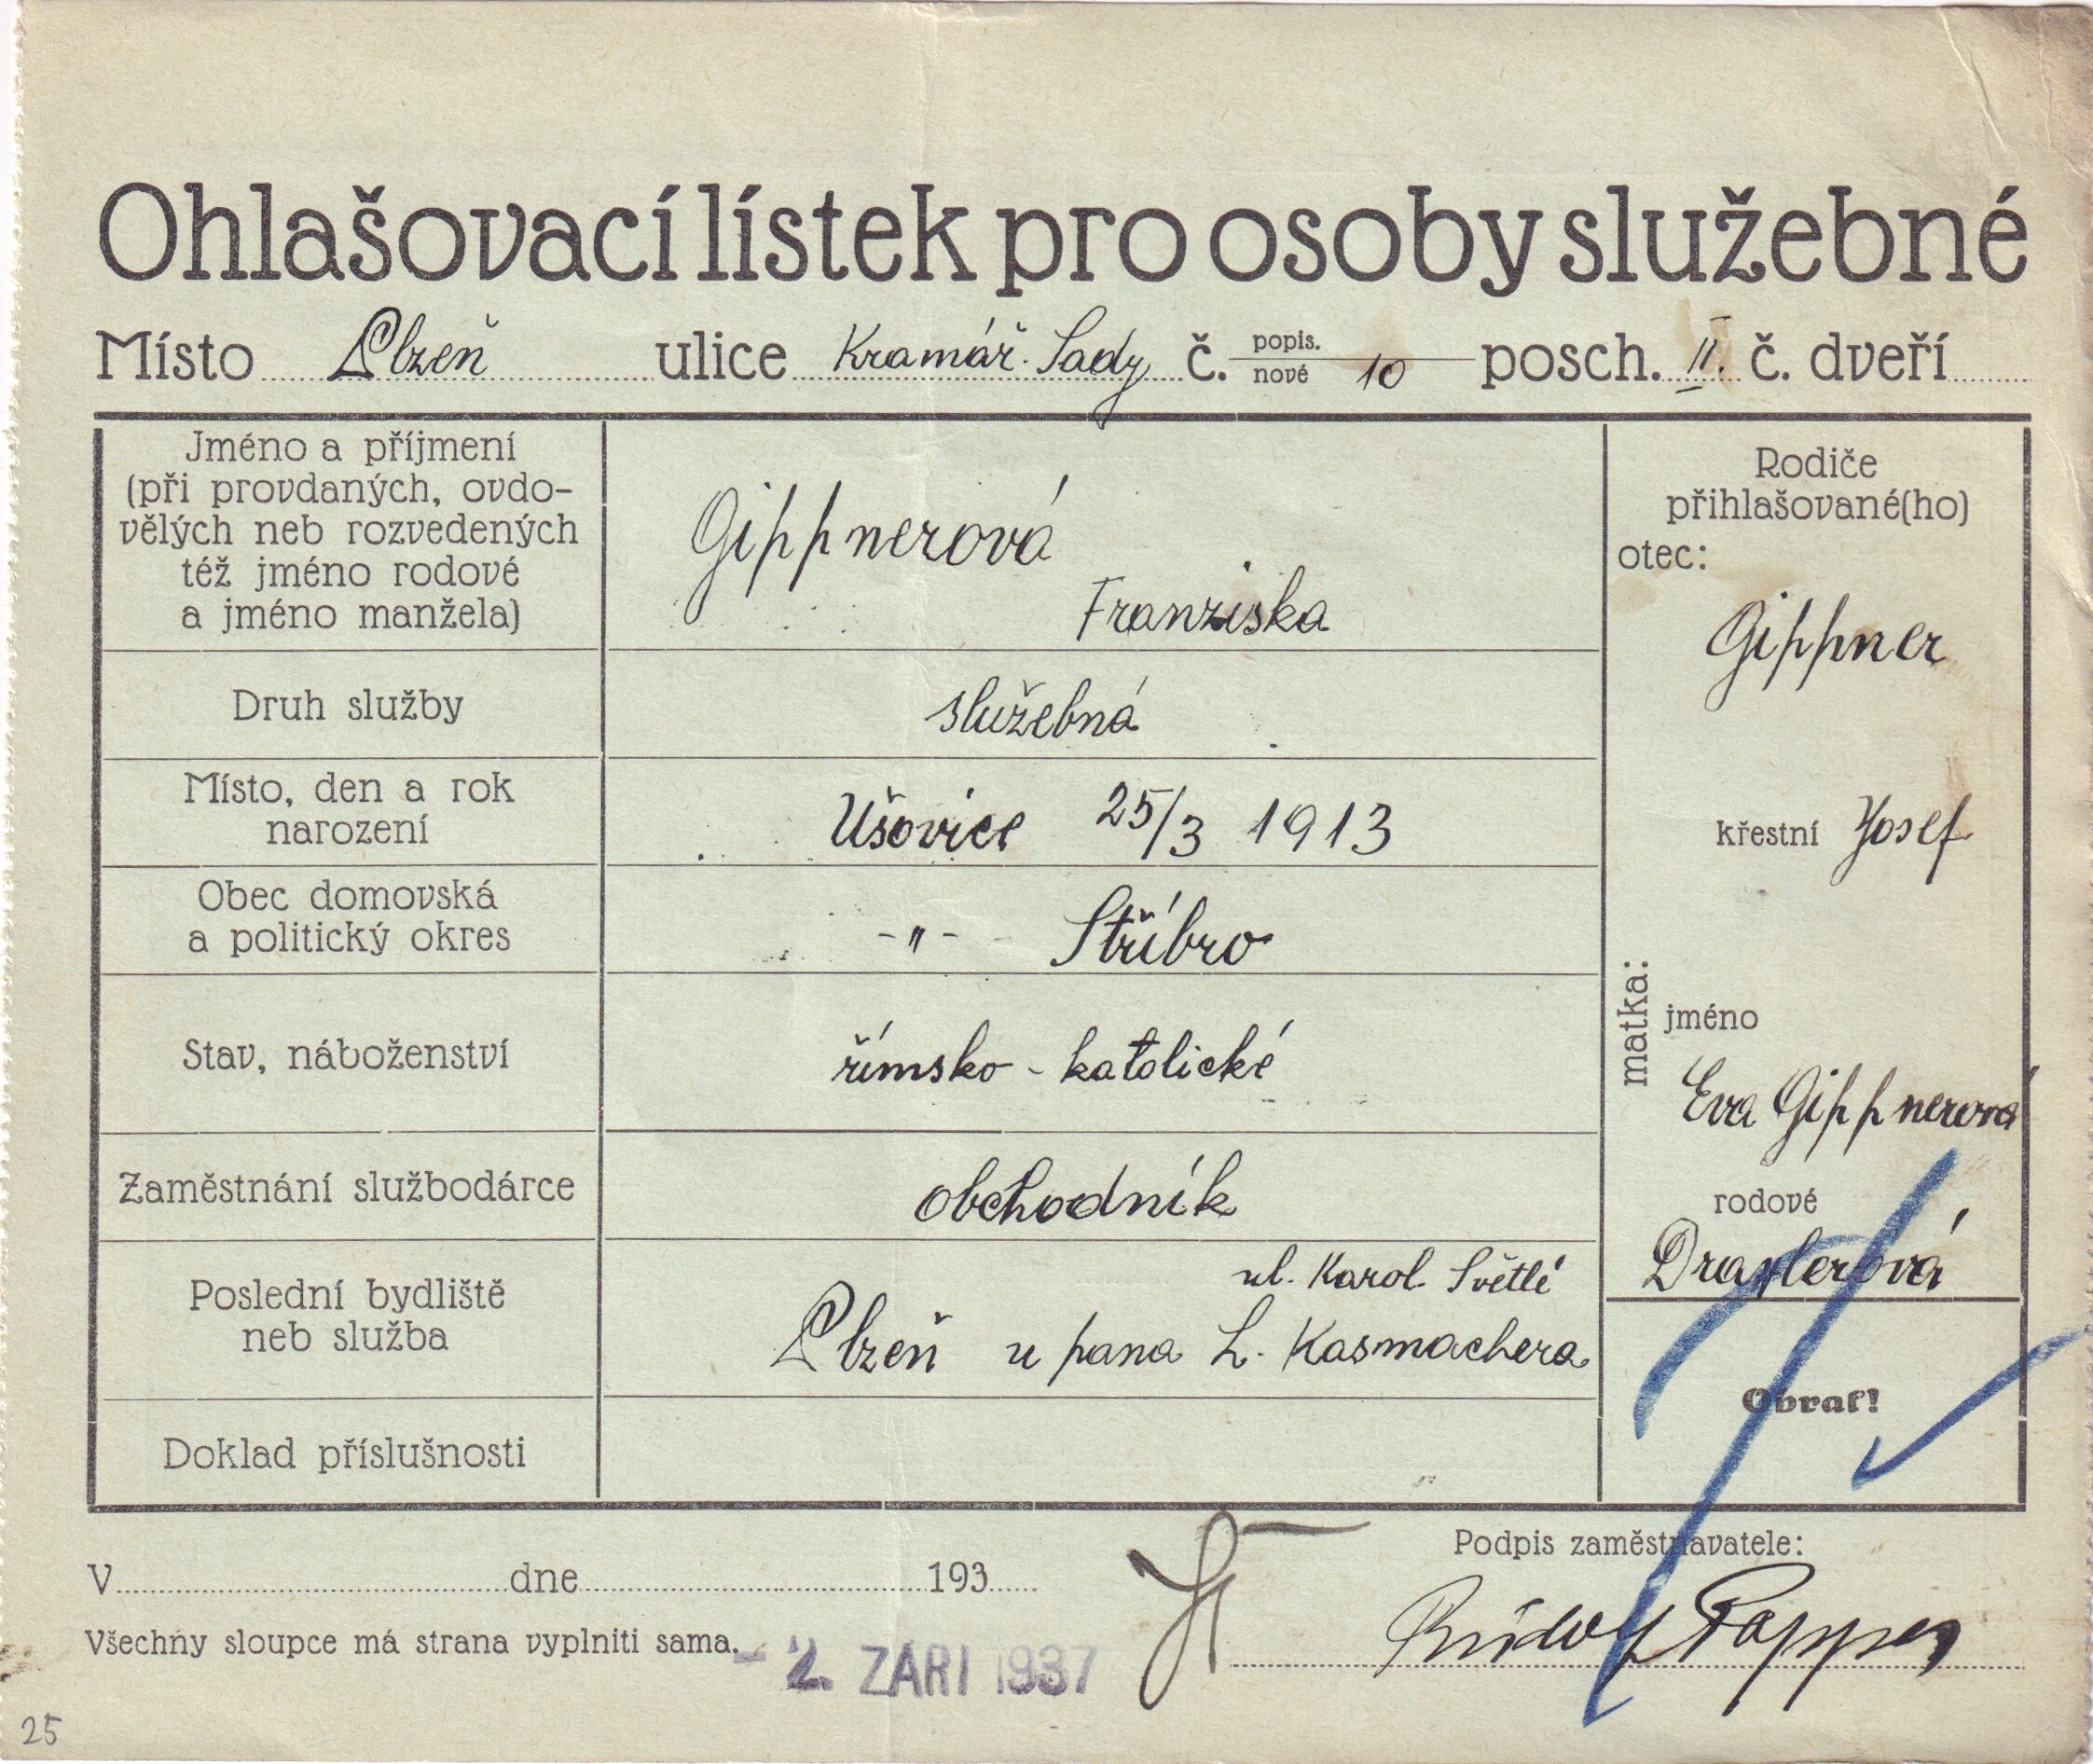 Ohlašovací lístek pro osoby služebné
Místo Plzeň ulice Kramář. Sady č. popis. nové 10 posch. II. č. dveří
Jméno a příjmení
(při provdaných, ovdo-
vělých neb rozvedených
též jméno rodové
a jméno manžela)
Gippnerová
Franziska
Druh služby
služebná
Místo, den a rok
narození
Úšovice 25/3 1913
Obec domovská
a politický okres
-"- Stříbro
Stav, náboženství
římsko-katolické
Zaměstnání službodárce
obchodník
Poslední bydliště
neb služba
ul. Karol. Světlé
Plzeň u pana L. Kasmachera
Doklad příslušnosti
Rodiče
přihlašované(ho)
otec:
Gippner
křestní Josef
matka:
jméno
Eva Gippnerová
rodové
Draxlerová
Obrať!
V dne 193
Všechny sloupce má strana vyplniti sama.
- 2. ZÁŘÍ 1937
Podpis zaměstnavatele:
Rudolf Popper
25